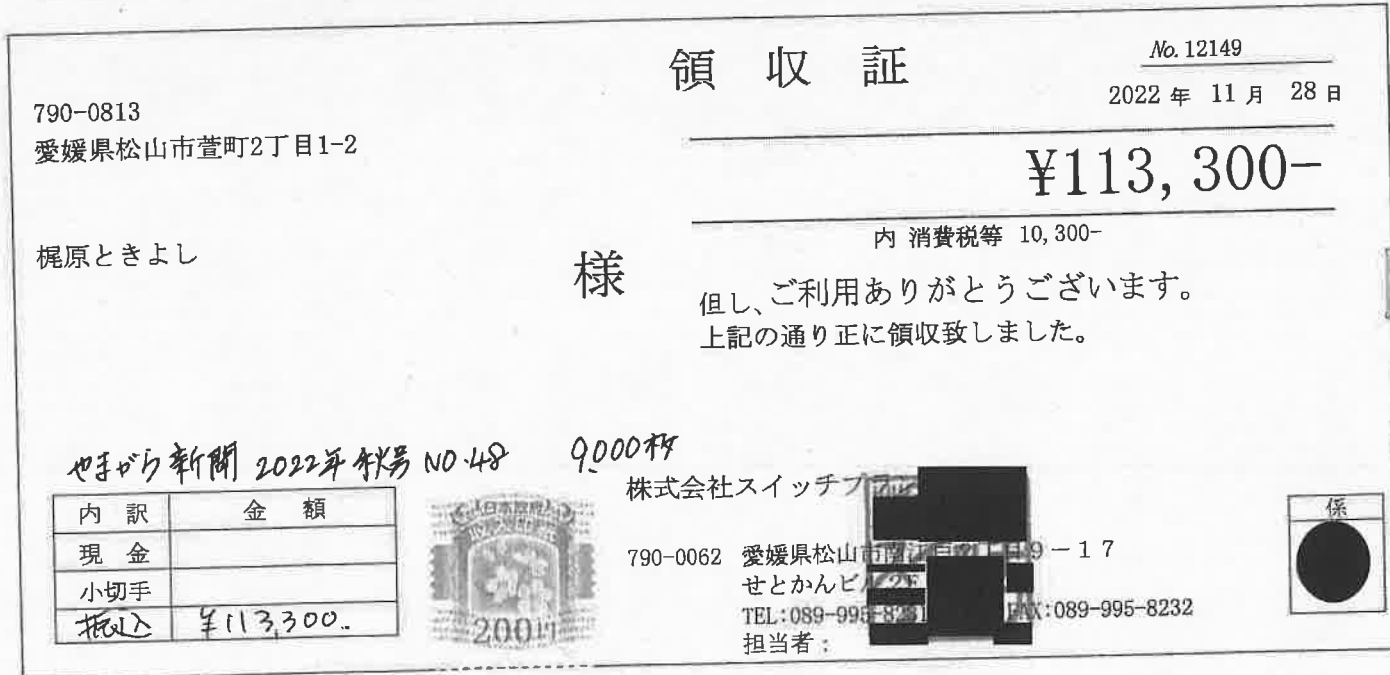 領収証
No. 12149
2022 年 11 月 28 日
790-0813
愛媛県松山市萱町2丁目1-2
¥113,300-
内 消費税等 10,300-
梶原ときよし 様
但し、ご利用ありがとうございます。
上記の通り正に領収致しました。
やまがら新聞 2022年 秋号 NO.48 9,000枚
内 訳 金 額
現 金
小切手
振込 ¥113,300.
日本政府
200円
株式会社スイッチ
790-0062 愛媛県松山市 9-17
せとかんビル 2F
TEL:089-995-82 FAX:089-995-8232
担当者:
係